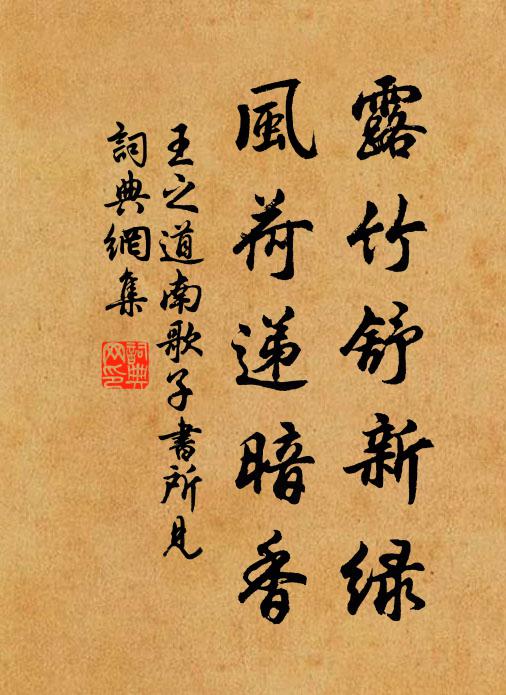 露竹舒新绿
風荷递暗香
王之道南歌子書所見
詞典網集
詞典网印